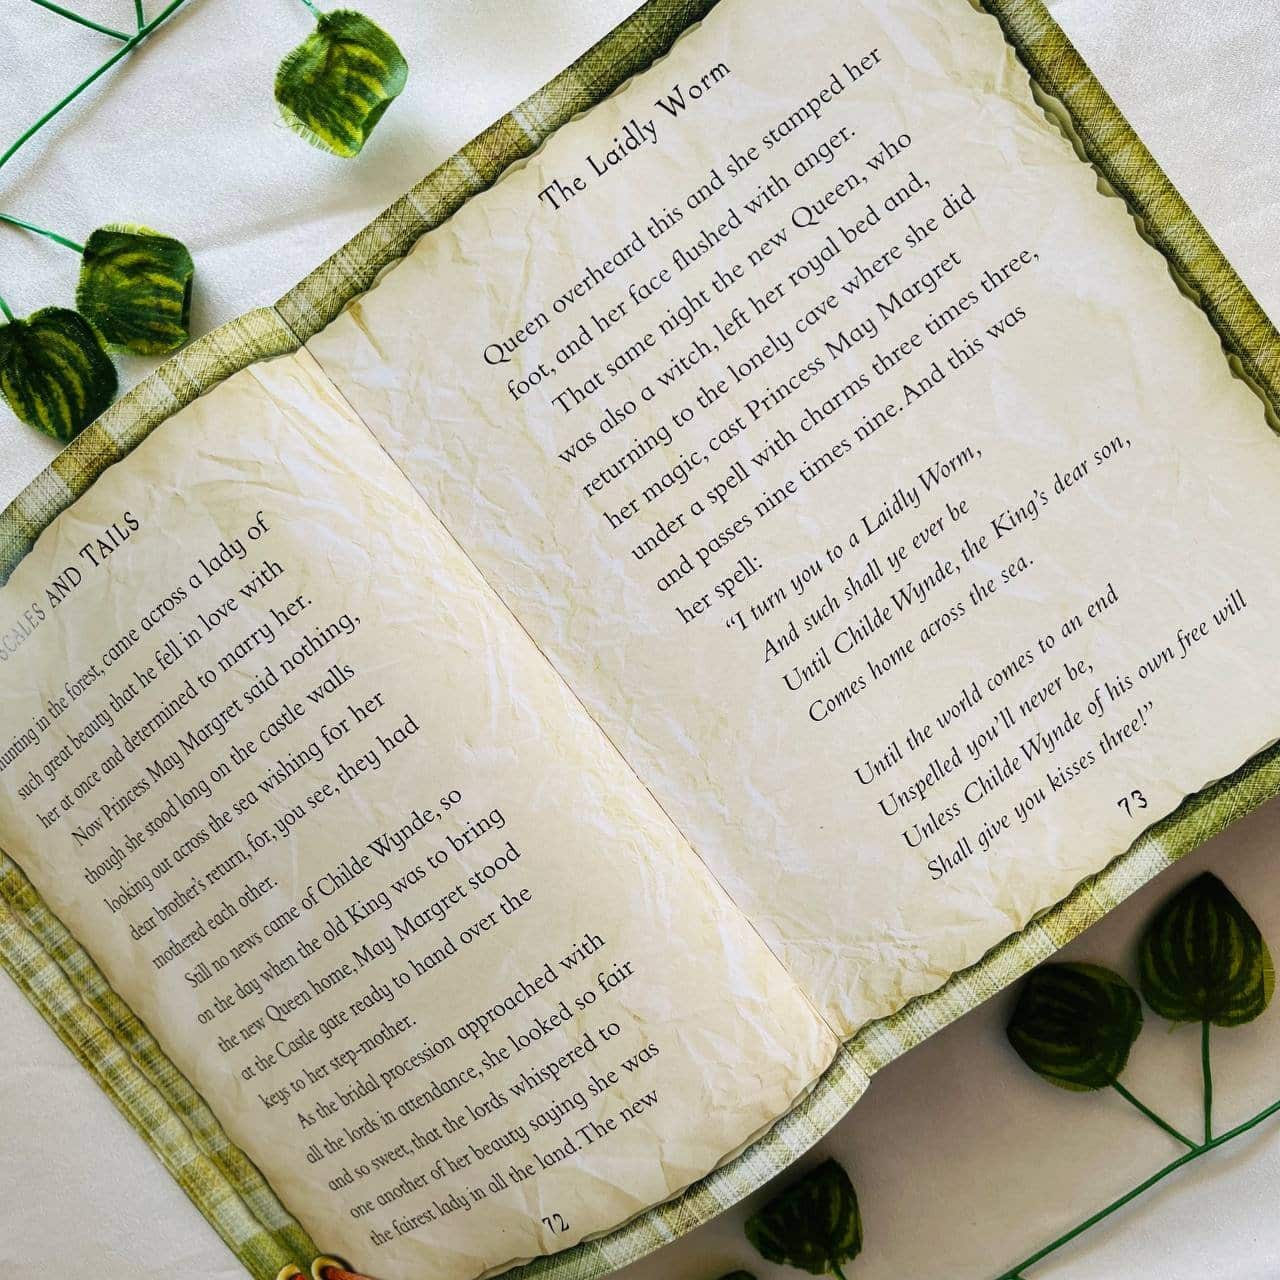 SCALES AND TAILS
hunting in the forest, came across a lady of
such great beauty that he fell in love with
her at once and determined to marry her.
Now Princess May Margret said nothing,
though she stood long on the castle walls
looking out across the sea wishing for her
dear brother's return, for, you see, they had
mothered each other.
Still no news came of Childe Wynde, so
on the day when the old King was to bring
the new Queen home, May Margret stood
at the Castle gate ready to hand over the
keys to her step-mother.
As the bridal procession approached with
all the lords in attendance, she looked so fair
and so sweet, that the lords whispered to
one another of her beauty saying she was
the fairest lady in all the land. The new
72
The Laidly Worm
Queen overheard this and she stamped her
foot, and her face flushed with anger.
That same night the new Queen, who
was also a witch, left her royal bed and,
returning to the lonely cave where she did
her magic, cast Princess May Margret
under a spell with charms three times three,
and passes nine times nine. And this was
her spell:
"I turn you to a Laidly Worm,
And such shall ye ever be
Until Childe Wynde, the King's dear son,
Comes home across the sea.
Until the world comes to an end
Unspelled you'll never be,
Unless Childe Wynde of his own free will
Shall give you kisses three!"
73